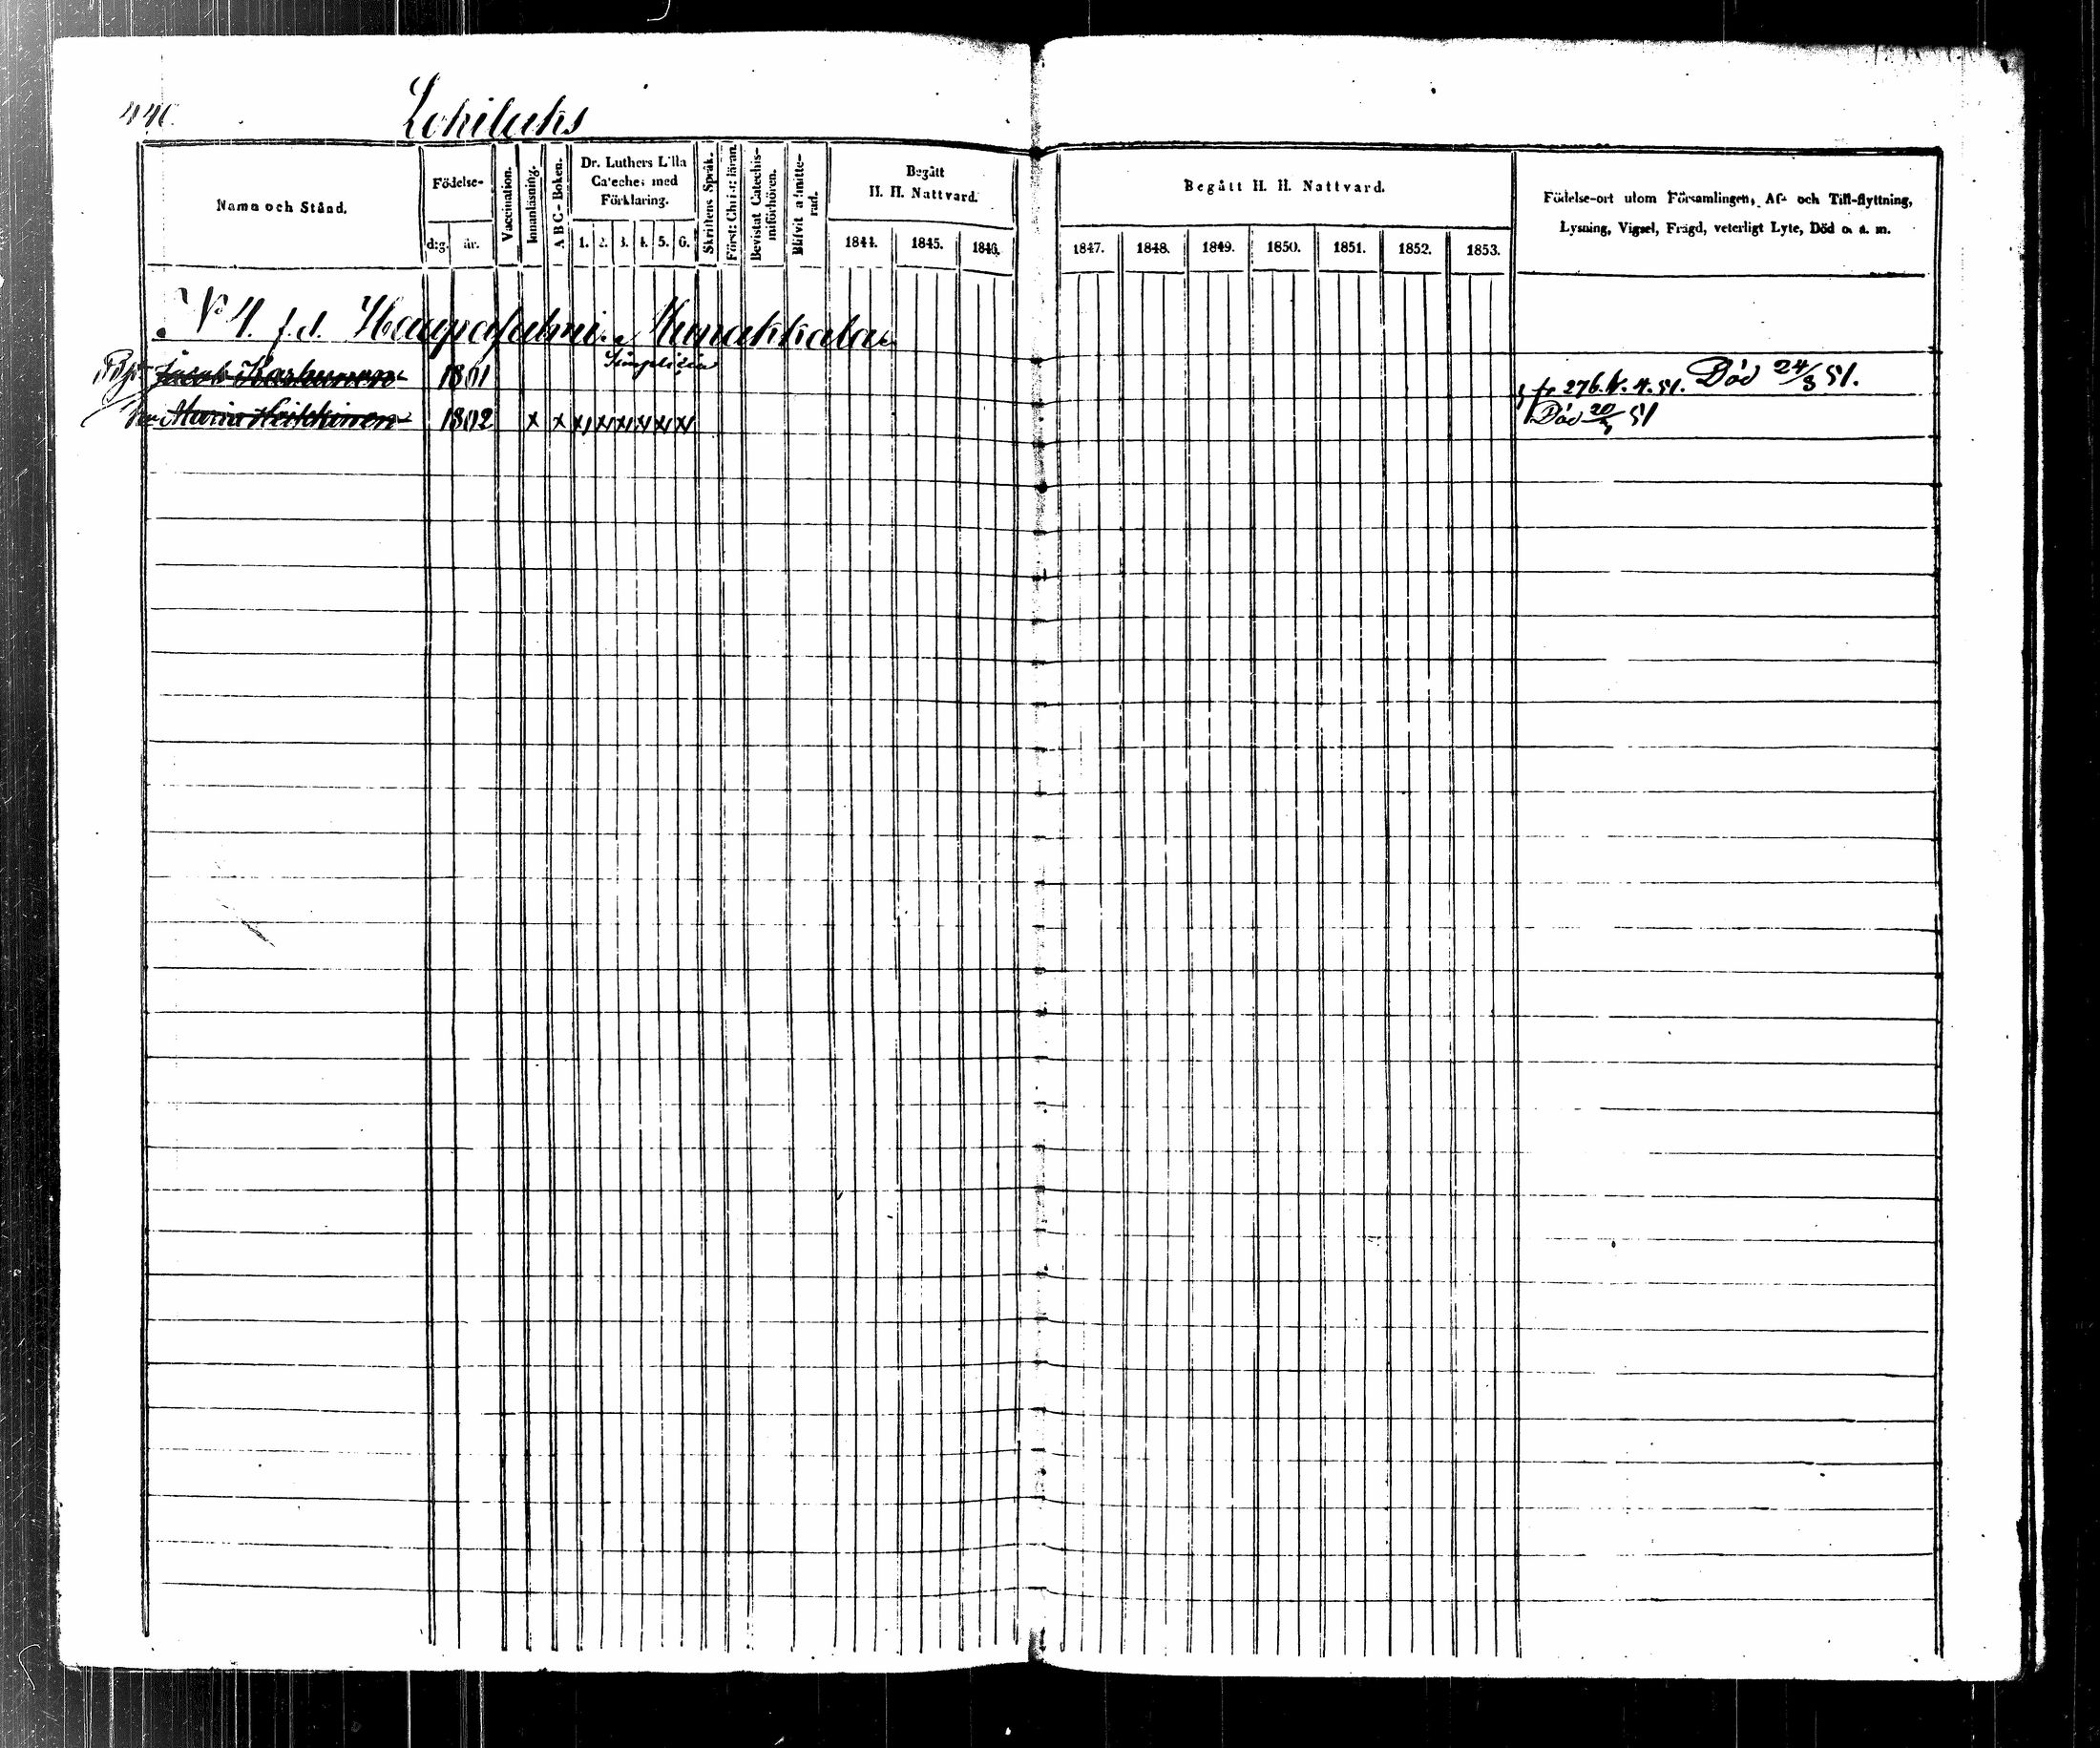 440.
Lohiluks
Namn och Stånd.
Födelse-
d:g.
år.
Vaccination.
Innanläsning.
A B C - Boken.
Dr. Luthers Lilla
Catechel med
Förklaring.
1. 2. 3. 4. 5. 6.
Skriftens Språk.
Först: Christ: läran.
Bevistat Catechis-
miförhören.
Blifvit admitte-
rad.
Begått
H. H. Nattvard.
1844. 1845. 1846.
Begått H. H. Nattvard.
1847. 1848. 1849. 1850. 1851. 1852. 1853.
Födelse-ort utom Församlingen, Af- och Till-flyttning,
Lysning, Vigsel, Frägd, veterligt Lyte, Död o. s. m.
N 4. f.d. Haapasalmi. Kunakkala
Jacob Karhunen 1801 Simplicia fr 276. k. 4. 51. Död 24/3 51.
Maria Heikkinen 1802 x x x x x x x x Död 20/3 51